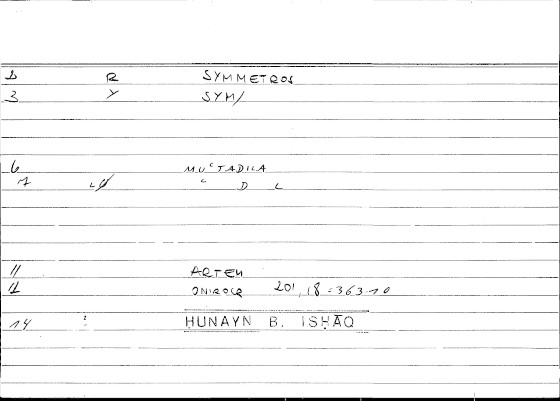 2 R SYMMETROS
3 Y SYM/
6 MUʿTADILA
7 ʿ D L
11 ARTEM
12 ONIROCR 201,18 = 363,10
14 : HUNAYN B. ISḤĀQ